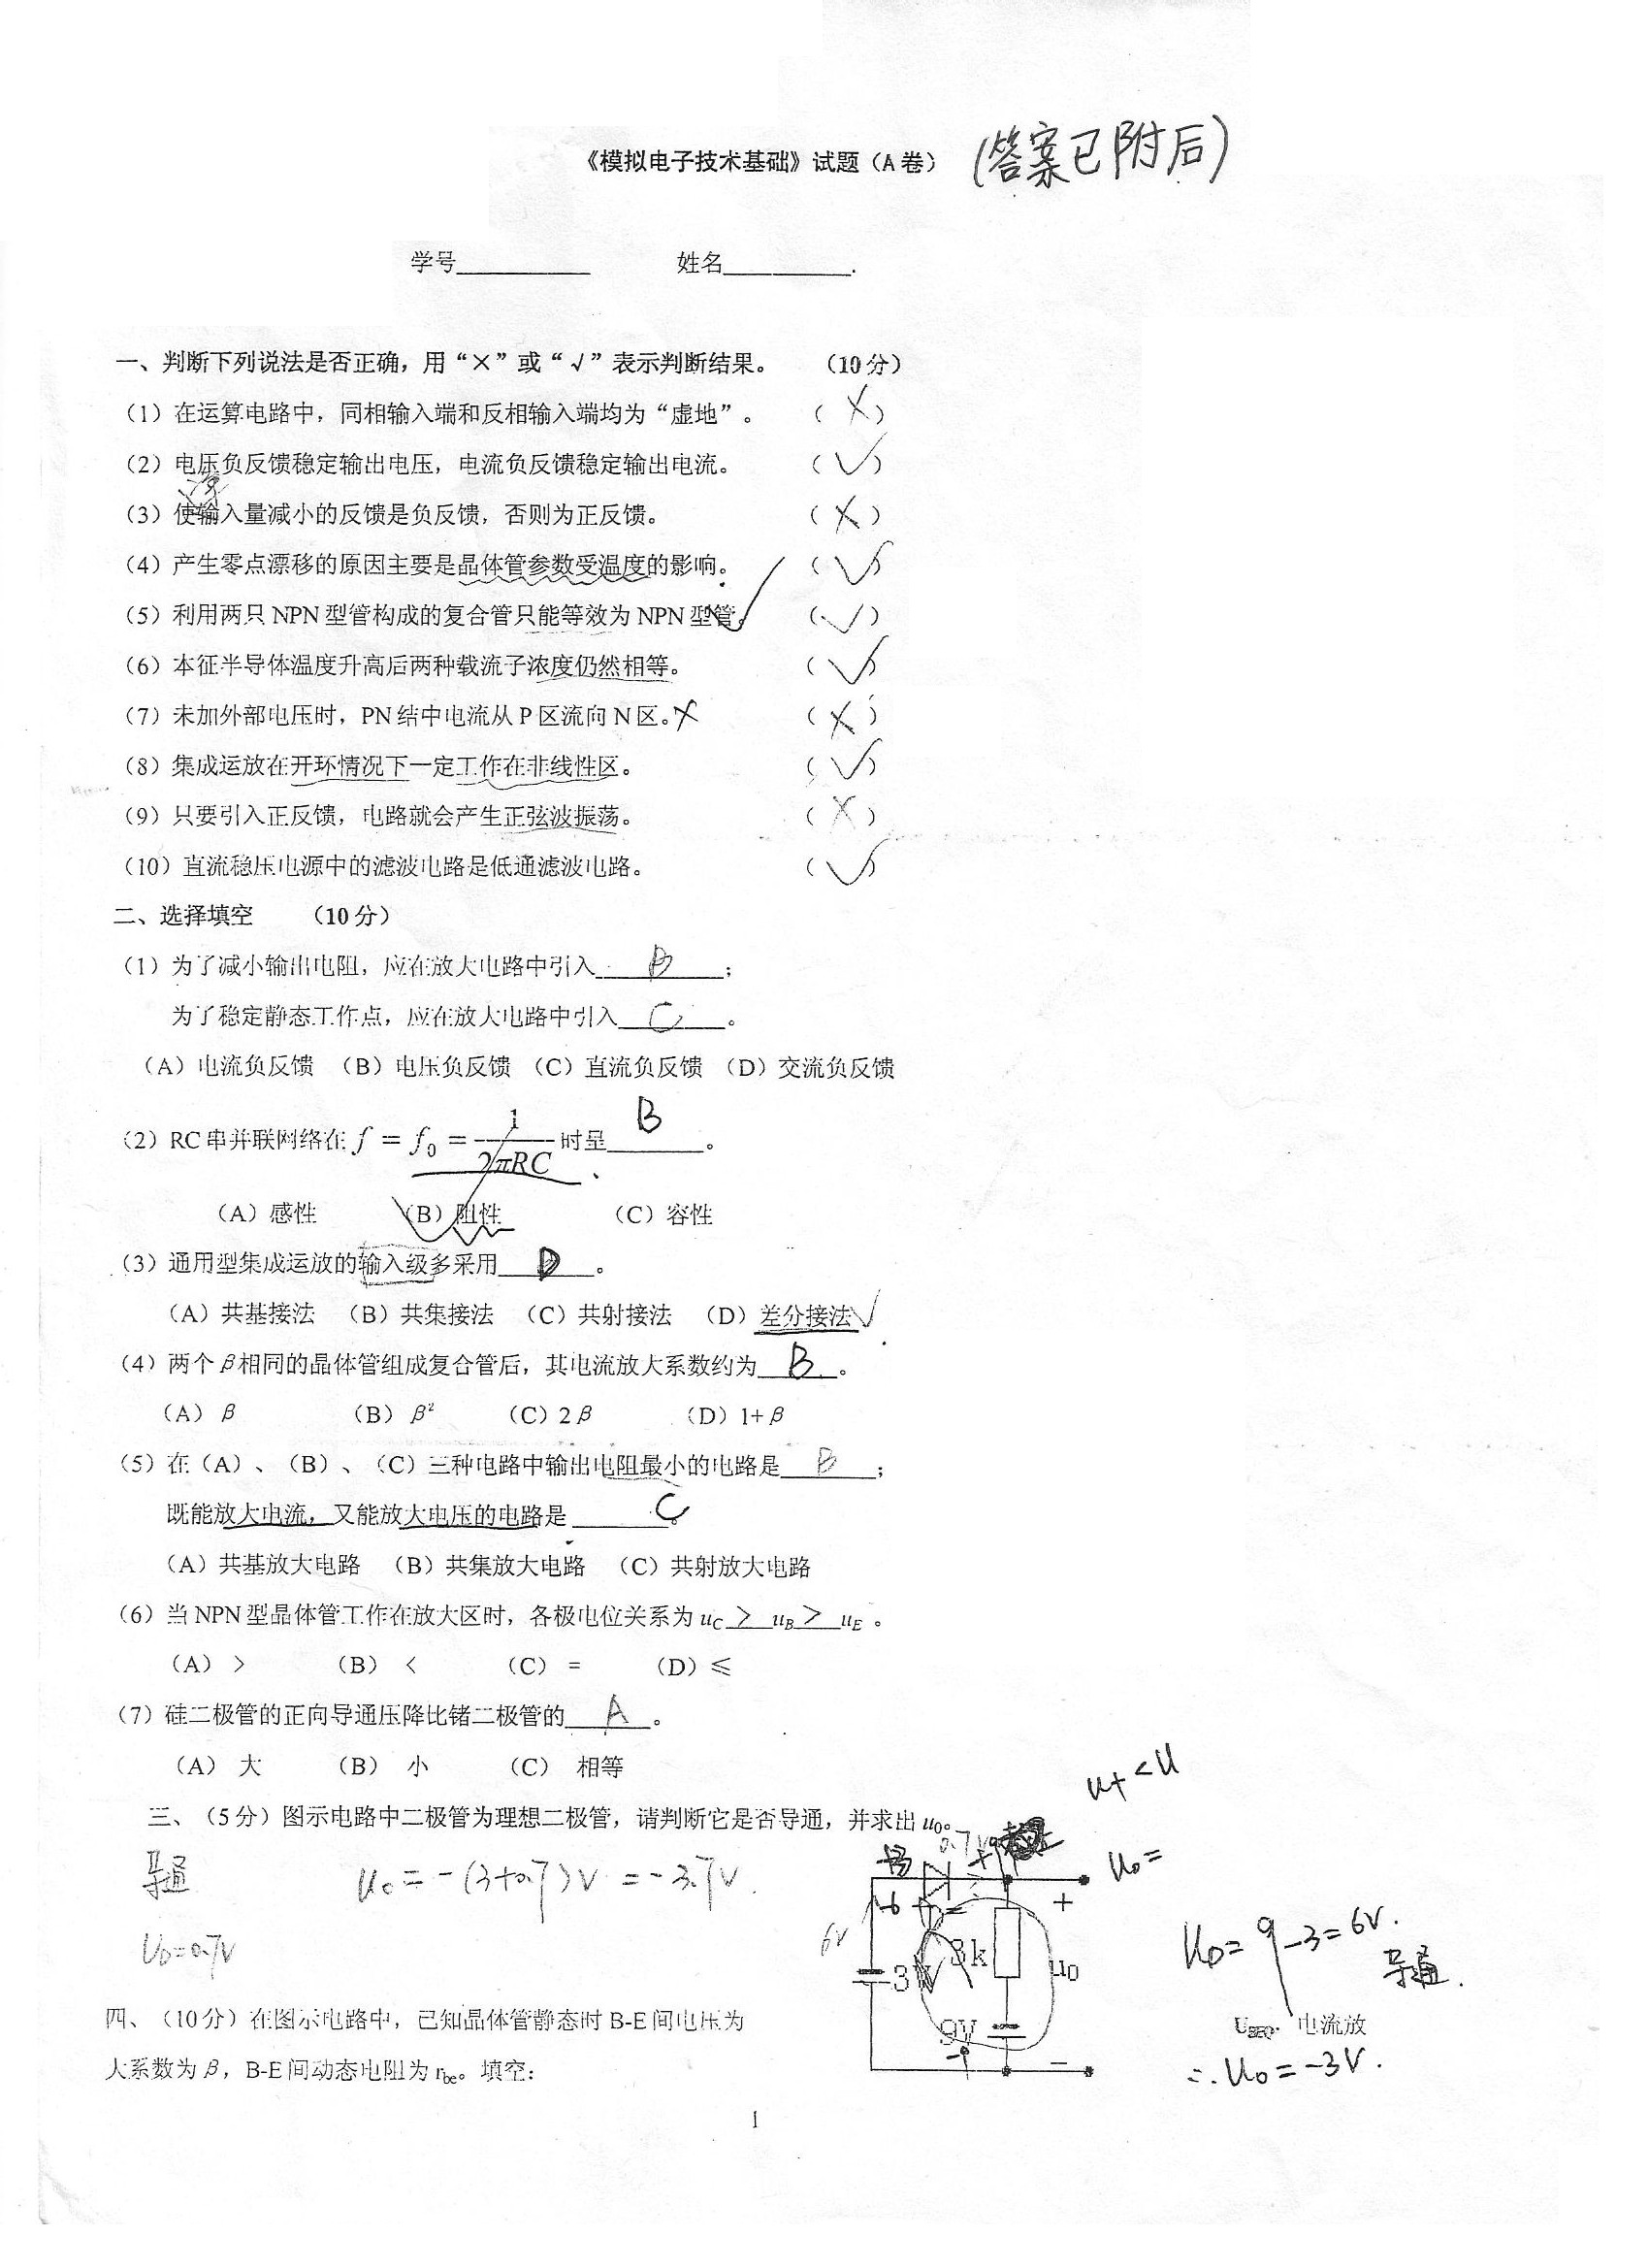 《模拟电子技术基础》试题（A卷） (答案已附后)
学号__________ 姓名__________.
一、判断下列说法是否正确，用“×”或“√”表示判断结果。 （10分）
（1）在运算电路中，同相输入端和反相输入端均为“虚地”。 （ × ）
（2）电压负反馈稳定输出电压，电流负反馈稳定输出电流。 （ √ ）
（3）使输入量减小的反馈是负反馈，否则为正反馈。 （ × ）
（4）产生零点漂移的原因主要是晶体管参数受温度的影响。 （ √ ）
（5）利用两只NPN型管构成的复合管只能等效为NPN型管。 √ （ √ ）
（6）本征半导体温度升高后两种载流子浓度仍然相等。 （ √ ）
（7）未加外部电压时，PN结中电流从P区流向N区。× （ × ）
（8）集成运放在开环情况下一定工作在非线性区。 （ √ ）
（9）只要引入正反馈，电路就会产生正弦波振荡。 （ × ）
（10）直流稳压电源中的滤波电路是低通滤波电路。 （ √ ）
二、选择填空 （10分）
（1）为了减小输出电阻，应在放大电路中引入 B ；
为了稳定静态工作点，应在放大电路中引入 C 。
（A）电流负反馈 （B）电压负反馈 （C）直流负反馈 （D）交流负反馈
（2）RC串并联网络在 f = f₀ = 1/2πRC 时呈 B 。
（A）感性 （B）阻性 （C）容性
（3）通用型集成运放的输入级多采用 D 。
（A）共基接法 （B）共集接法 （C）共射接法 （D）差分接法 √
（4）两个β相同的晶体管组成复合管后，其电流放大系数约为 B 。
（A）β （B）β² （C）2β （D）1+β
（5）在（A）、（B）、（C）三种电路中输出电阻最小的电路是 B ；
既能放大电流，又能放大电压的电路是 C 。
（A）共基放大电路 （B）共集放大电路 （C）共射放大电路
（6）当NPN型晶体管工作在放大区时，各极电位关系为 uC > uB > uE 。
（A） > （B） < （C） = （D）≤
（7）硅二极管的正向导通压降比锗二极管的 A 。
（A） 大 （B） 小 （C） 相等
u+ < u
三、（5分）图示电路中二极管为理想二极管，请判断它是否导通，并求出 u0。
导通 u₀ = -(3+0.7)V = -3.7V.
0.7V
u₀ =
+
U_D=0.7V
6V
3V
3k
u0
9V
−
U_D = 9-3=6V.
导通.
∴ u₀ = -3V.
四、（10分）在图示电路中，已知晶体管静态时B-E间电压为 UBEQ. 电流放
大系数为β，B-E间动态电阻为rbe。填空：
1